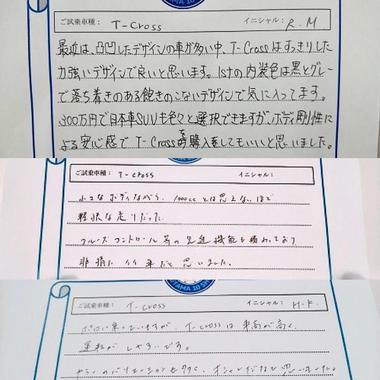 ご試乗車種： T-Cross イニシャル： R.M
最近は、凸凹したデザインの車が多い中、T-Crossはすっきりした
力強いデザインで良いと思います。1stの内装色は黒とグレー
で落ち着きのある飽きのこないデザインで気に入ってます。
300万円で日本車SUVも色々と選択できますが、ボディ剛性
による安心感で T-Crossを購入をしてもいいと思いました。
ご試乗車種： T-cross イニシャル：
小さなボディながら、1000ccとは思えないほど
軽快な走りだった。
クルーズコントロール等の先進機能も備わっており
非常に いい車だと思いました。
TAMA 10 SH
ご試乗車種： T-cross イニシャル： H.F
T-crossは車高が高く、
運転がしやすいです。